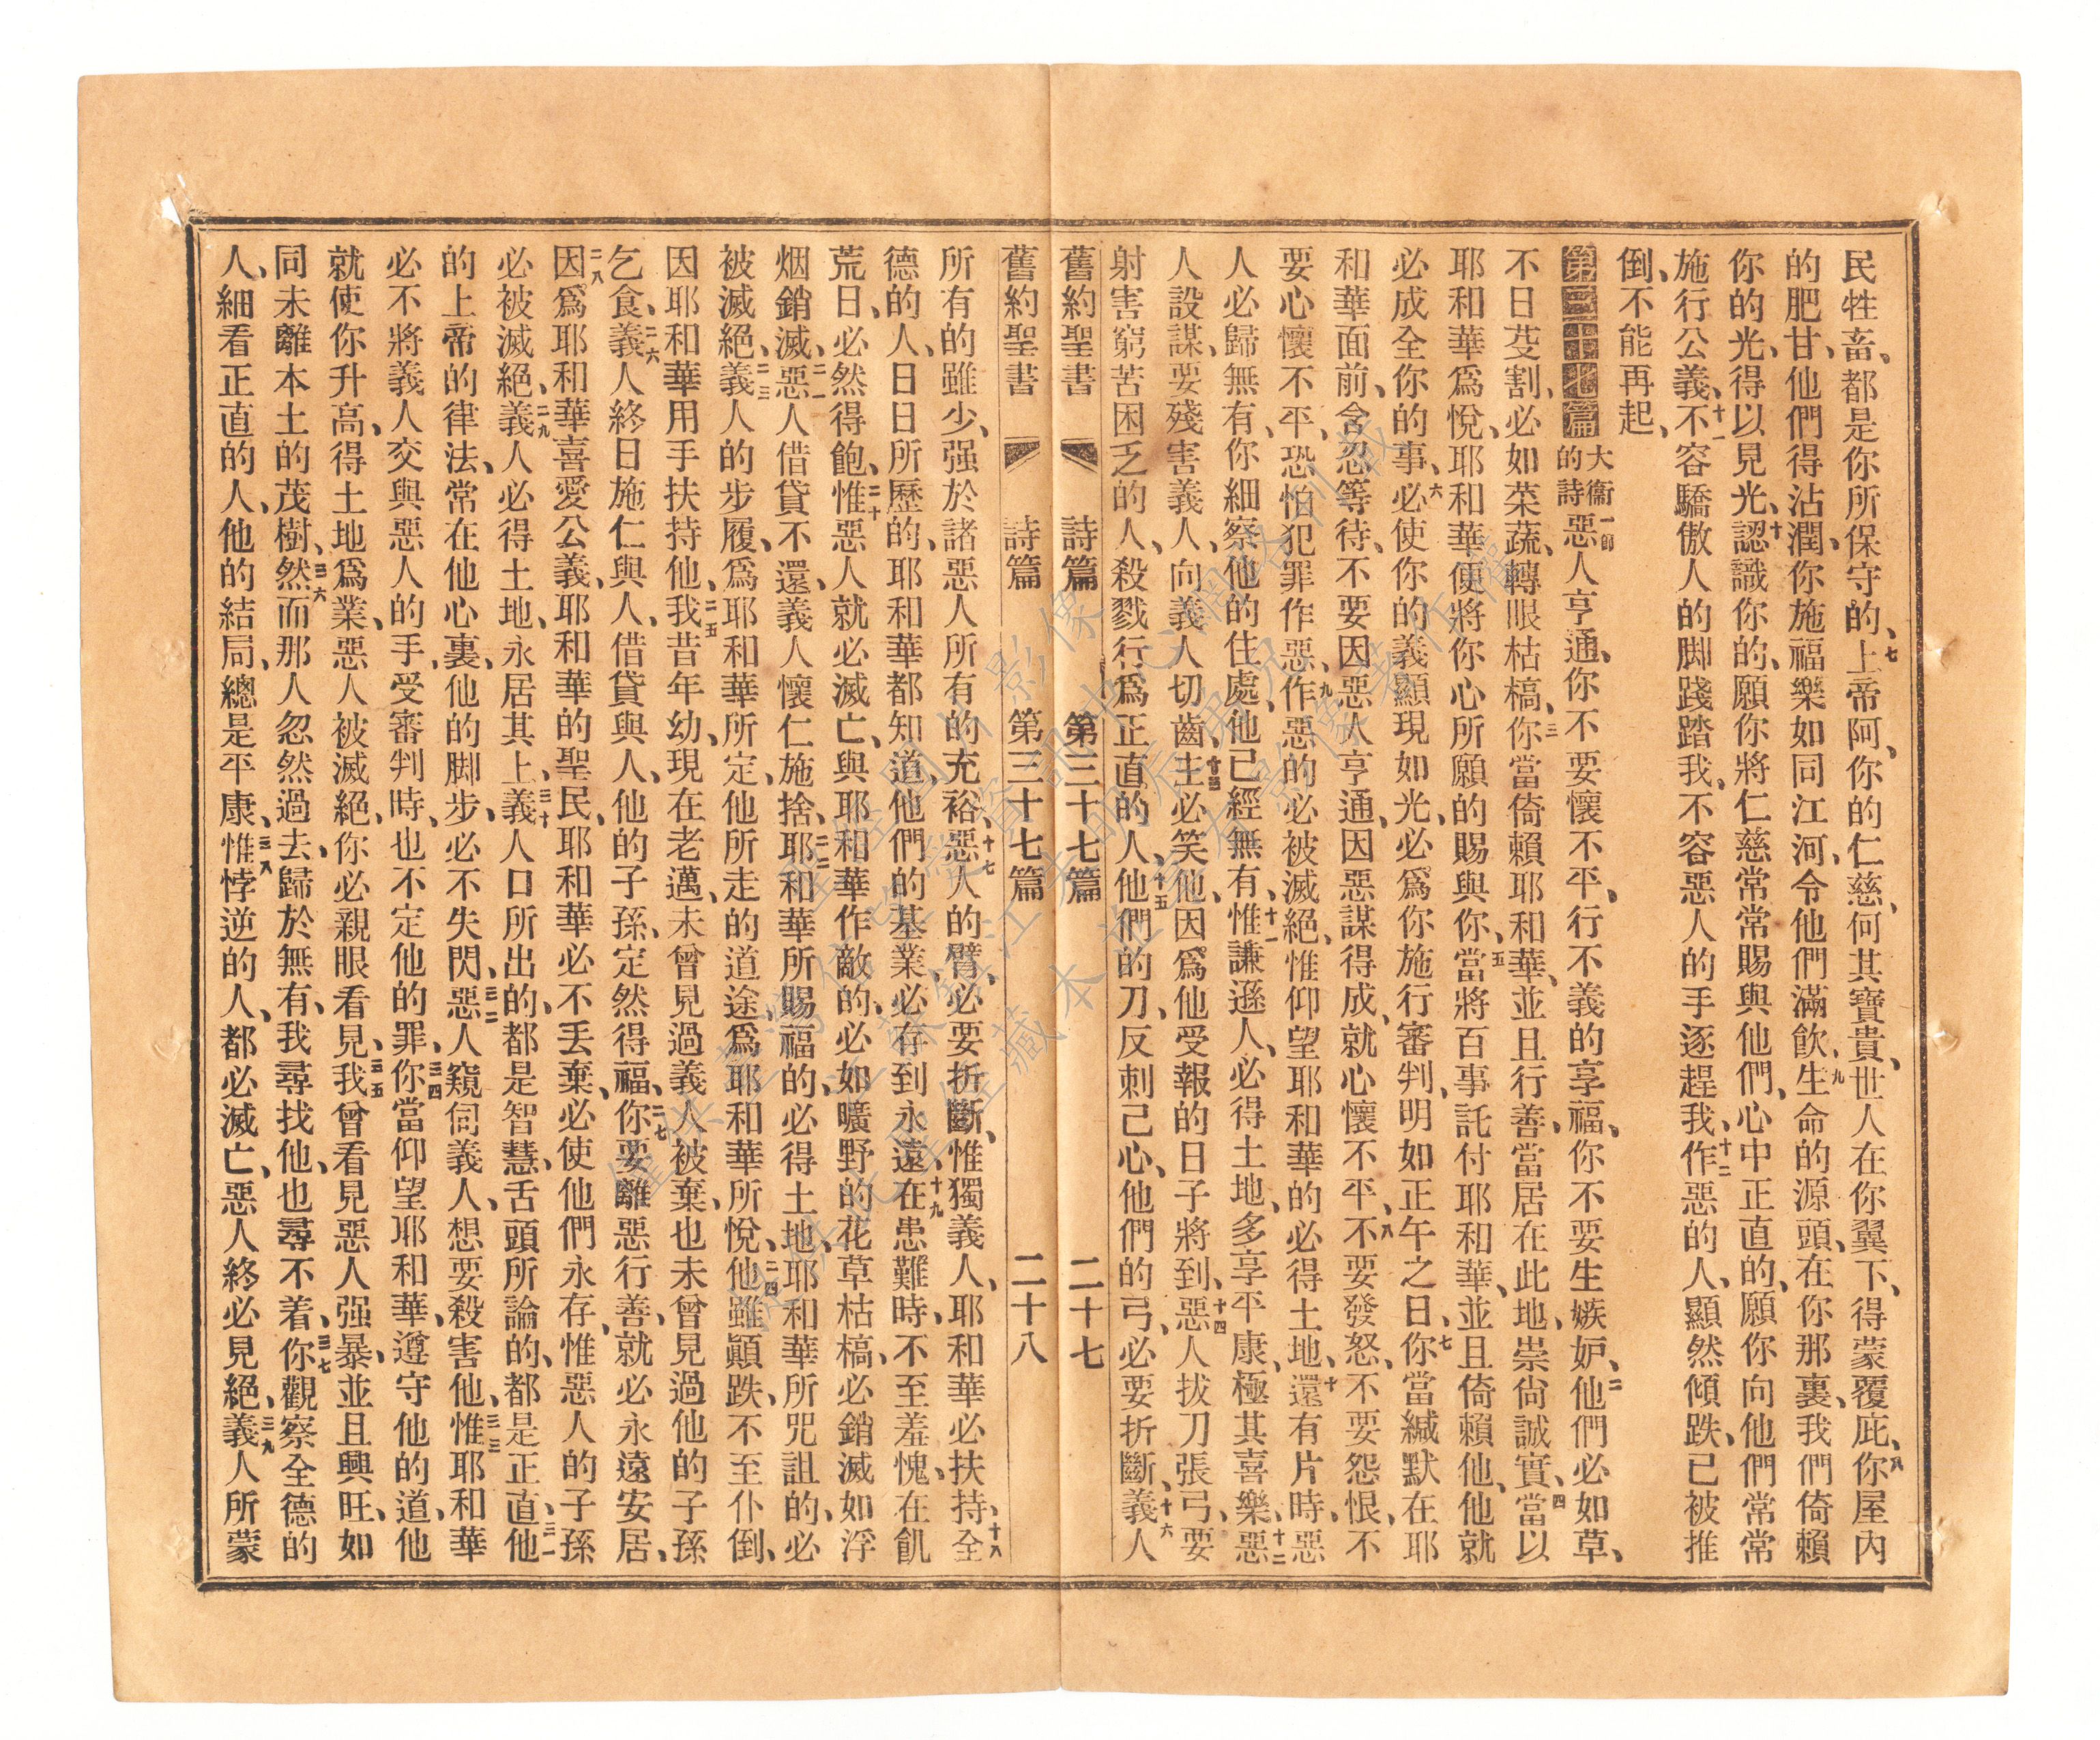 民牲畜、都是你所保守的、七上帝阿、你的仁慈、何其寶貴、世人在你翼下、得蒙覆庇、八你屋內
的肥甘、他們得沾潤、你施福樂如同江河、令他們滿飲、九生命的源頭、在你那裏、我們倚賴
你的光、得以見光、十認識你的、願你將仁慈常常賜與他們、心中正直的、願你向他們常常
施行公義、十一不容驕傲人的脚踐踏我、不容惡人的手逐趕我、十二作惡的人、顯然傾跌、已被推
倒、不能再起、
第三十七篇 大衞的詩 一節惡人亨通、你不要懷不平、行不義的享福、你不要生嫉妒、二他們必如草、
不日芟割、必如菜蔬、轉眼枯槁、三你當倚賴耶和華、並且行善、當居在此地、崇尙誠實、四當以
耶和華爲悅、耶和華便將你心所願的賜與你、五當將百事託付耶和華、並且倚賴他、他就
必成全你的事、六必使你的義顯現如光、必爲你施行審判、明如正午之日、七你當緘默在耶
和華面前、含忍等待、不要因惡人亨通、因惡謀得成、就心懷不平、八不要發怒、不要怨恨、不
要心懷不平、恐怕犯罪作惡、九作惡的必被滅絕、惟仰望耶和華的必得土地、十還有片時、惡
人必歸無有、你細察他的住處、他已經無有、十一惟謙遜人、必得土地、多享平康、極其喜樂、十二惡
人設謀、要殘害義人、向義人切齒、十三主必笑他、因爲他受報的日子將到、十四惡人拔刀張弓、要
射害窮苦困乏的人、殺戮行爲正直的人、十五他們的刀、反刺己心、他們的弓、必要折斷、十六義人
舊約聖書 詩篇 第三十七篇 二十七
舊約聖書 詩篇 第三十七篇 二十八
所有的雖少、强於諸惡人所有的充裕、十七惡人的臂、必要折斷、惟獨義人、耶和華必扶持、十八全
德的人、日日所歷的、耶和華都知道、他們的基業、必存到永遠、十九在患難時、不至羞愧、在飢
荒日、必然得飽、二十惟惡人就必滅亡、與耶和華作敵的、必如曠野的花草枯槁、必銷滅如浮
烟銷滅、二一惡人借貸不還、義人懷仁施捨、二二耶和華所賜福的、必得土地、耶和華所咒詛的、必
被滅絕、二三義人的步履、爲耶和華所定、他所走的道途、爲耶和華所悅、二四他雖顚跌、不至仆倒、
因耶和華用手扶持他、二五我昔年幼、現在老邁、未曾見過義人被棄、也未曾見過他的子孫
乞食、二六義人終日施仁與人、借貸與人、他的子孫、定然得福、二七你要離惡行善、就必永遠安居、
二八因爲耶和華喜愛公義、耶和華的聖民、耶和華必不丟棄、必使他們永存、惟惡人的子孫
必被滅絕、二九義人必得土地、永居其上、三十義人口所出的、都是智慧、舌頭所論的、都是正直、三一他
的上帝的律法、常在他心裏、他的脚步、必不失閃、三二惡人窺伺義人、想要殺害他、三三惟耶和華
必不將義人交與惡人的手、受審判時、也不定他的罪、三四你當仰望耶和華、遵守他的道、他
就使你升高、得土地爲業、惡人被滅絕、你必親眼看見、三五我曾看見惡人强暴、並且興旺、如
同未離本土的茂樹、三六然而那人忽然過去、歸於無有、我尋找他、也尋不着、三七你觀察全德的
人、細看正直的人、他的結局、總是平康、三八惟悖逆的人、都必滅亡、惡人終必見絕、三九義人所蒙